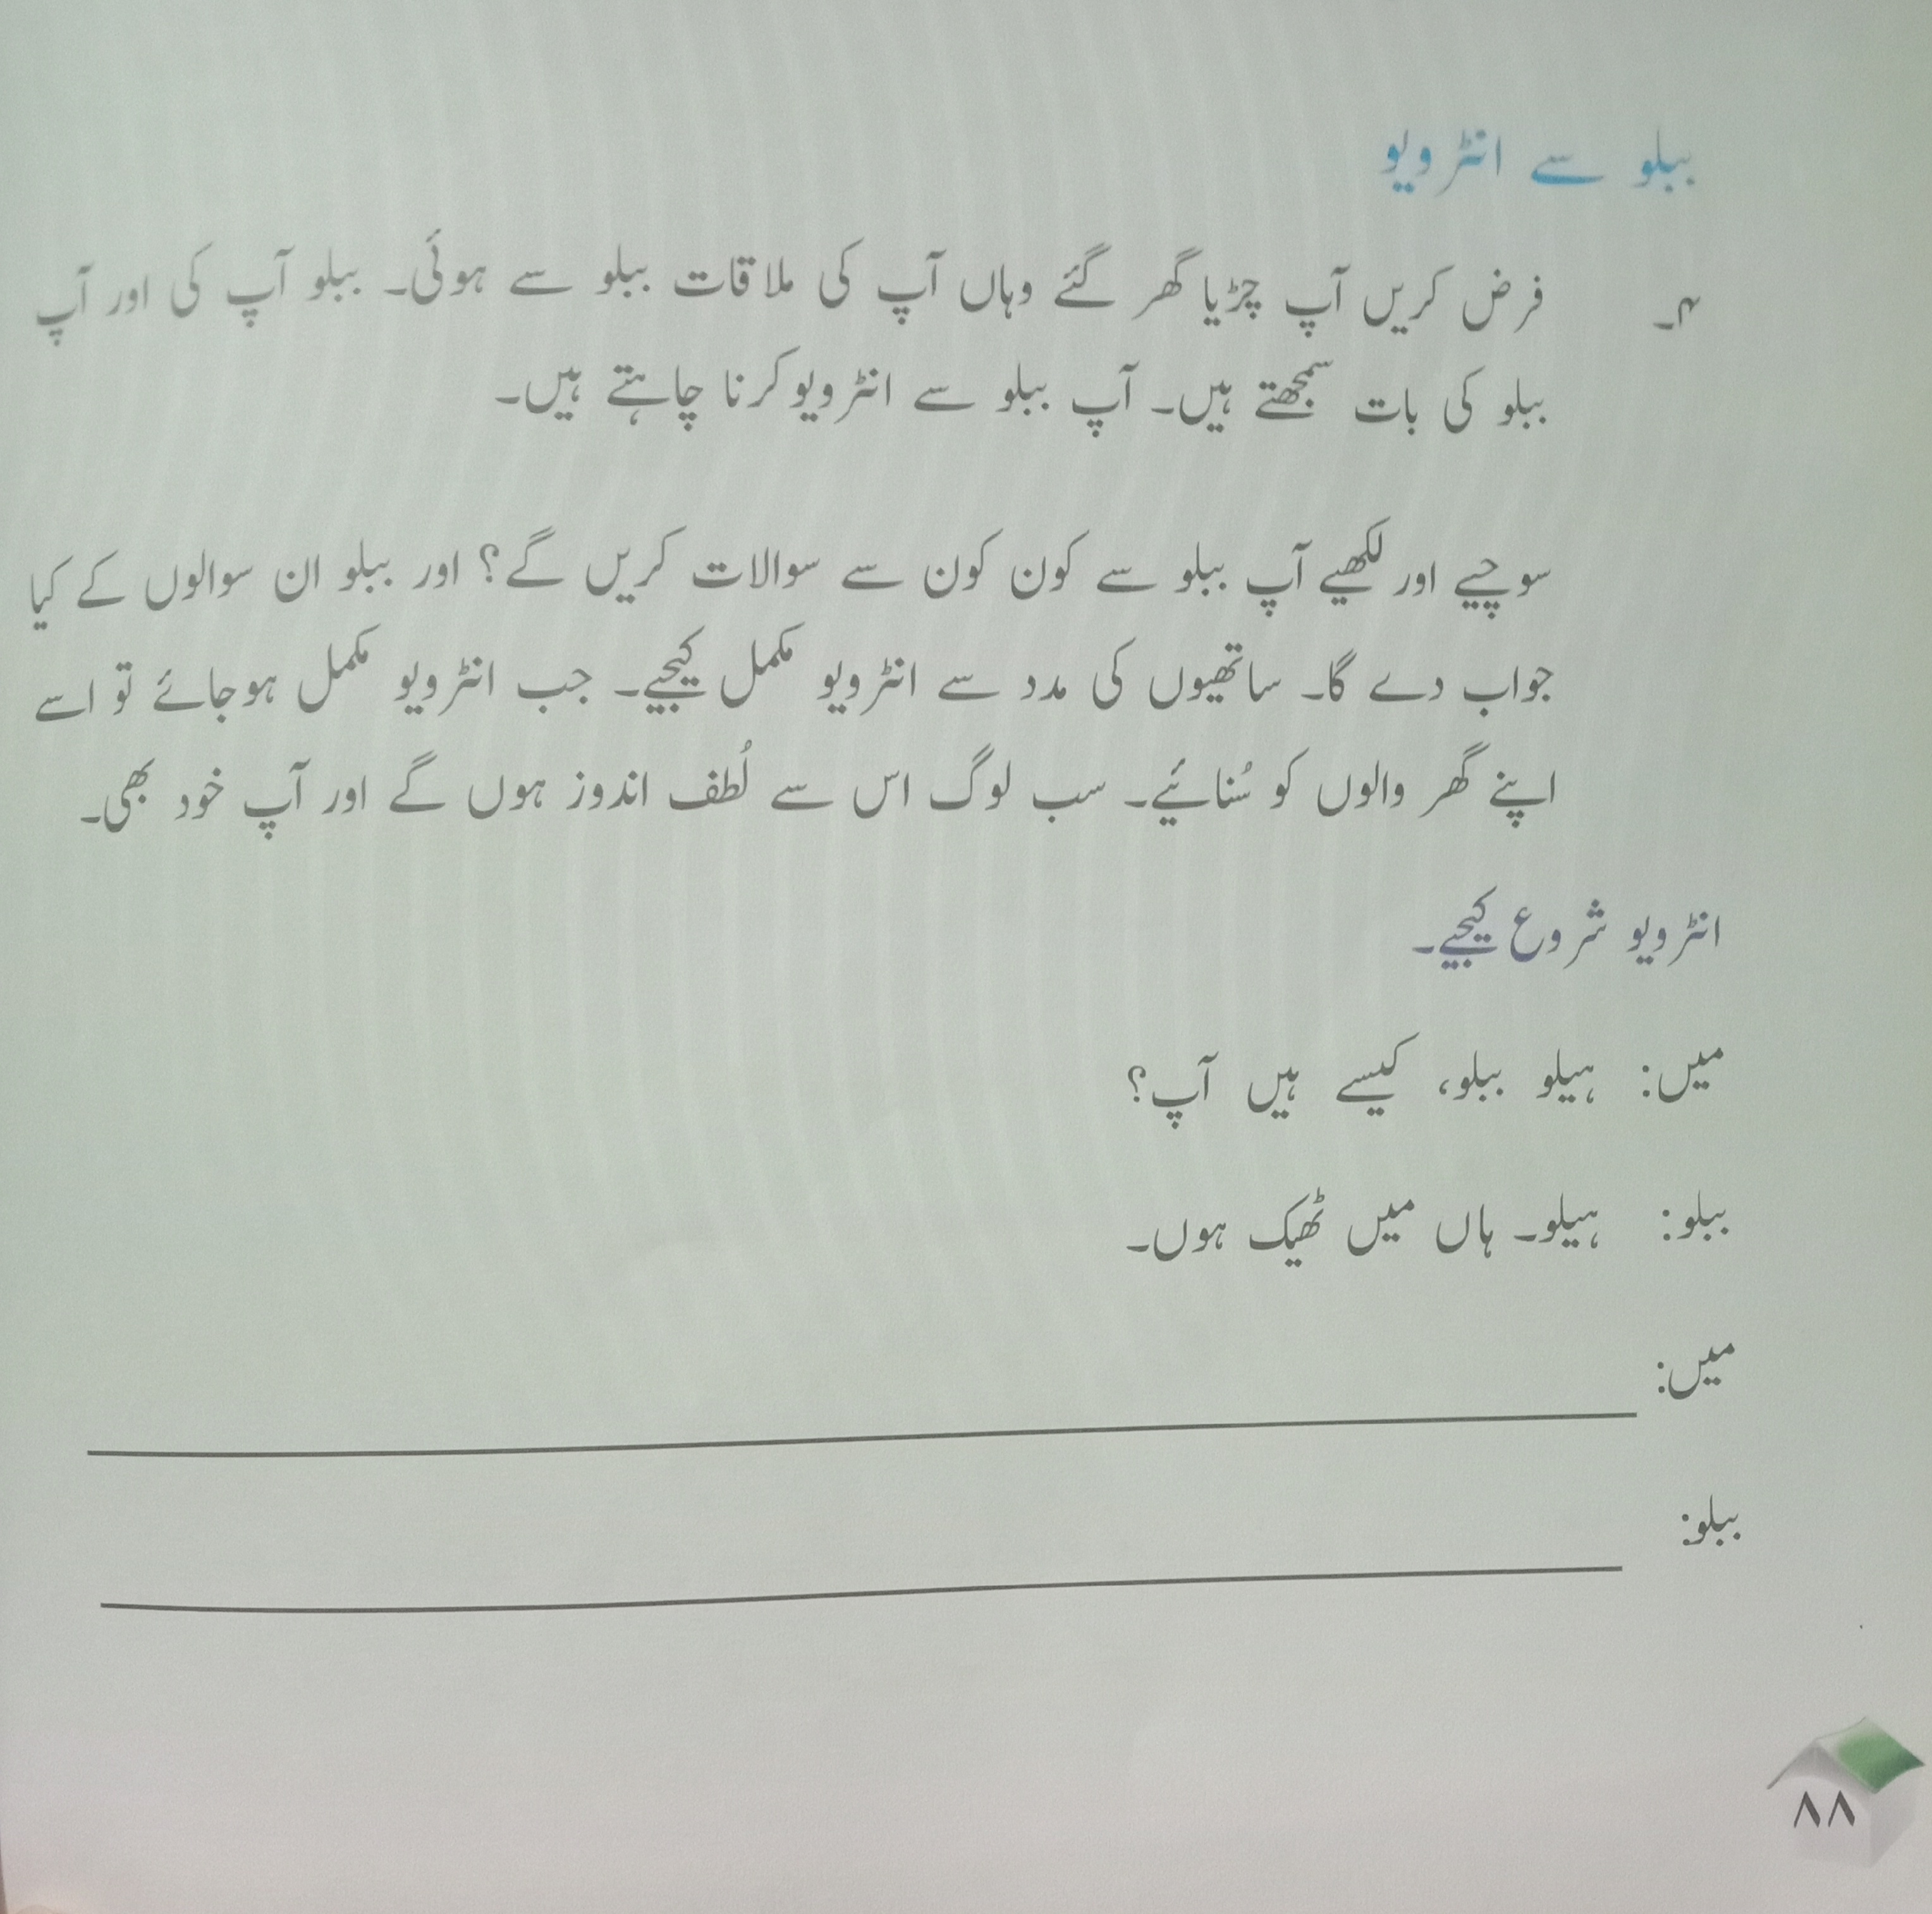 ببلو سے انٹرویو
۴۔ فرض کریں آپ چڑیا گھر گئے وہاں آپ کی ملاقات ببلو سے ہوئی۔ ببلو آپ کی اور آپ
ببلو کی بات سمجھتے ہیں۔ آپ ببلو سے انٹرویو کرنا چاہتے ہیں۔
سوچیے اور لکھیے آپ ببلو سے کون کون سے سوالات کریں گے؟ اور ببلو ان سوالوں کے کیا
جواب دے گا۔ ساتھیوں کی مدد سے انٹرویو مکمل کیجیے۔ جب انٹرویو مکمل ہوجائے تو اسے
اپنے گھر والوں کو سُنائیے۔ سب لوگ اس سے لُطف اندوز ہوں گے اور آپ خود بھی۔
انٹرویو شروع کیجیے۔
میں: ہیلو ببلو، کیسے ہیں آپ؟
ببلو: ہیلو۔ ہاں میں ٹھیک ہوں۔
میں:
ببلو:
۸۸